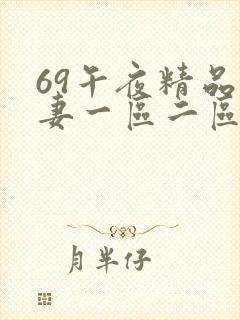 69午夜精品
妻一區二區
月半仔